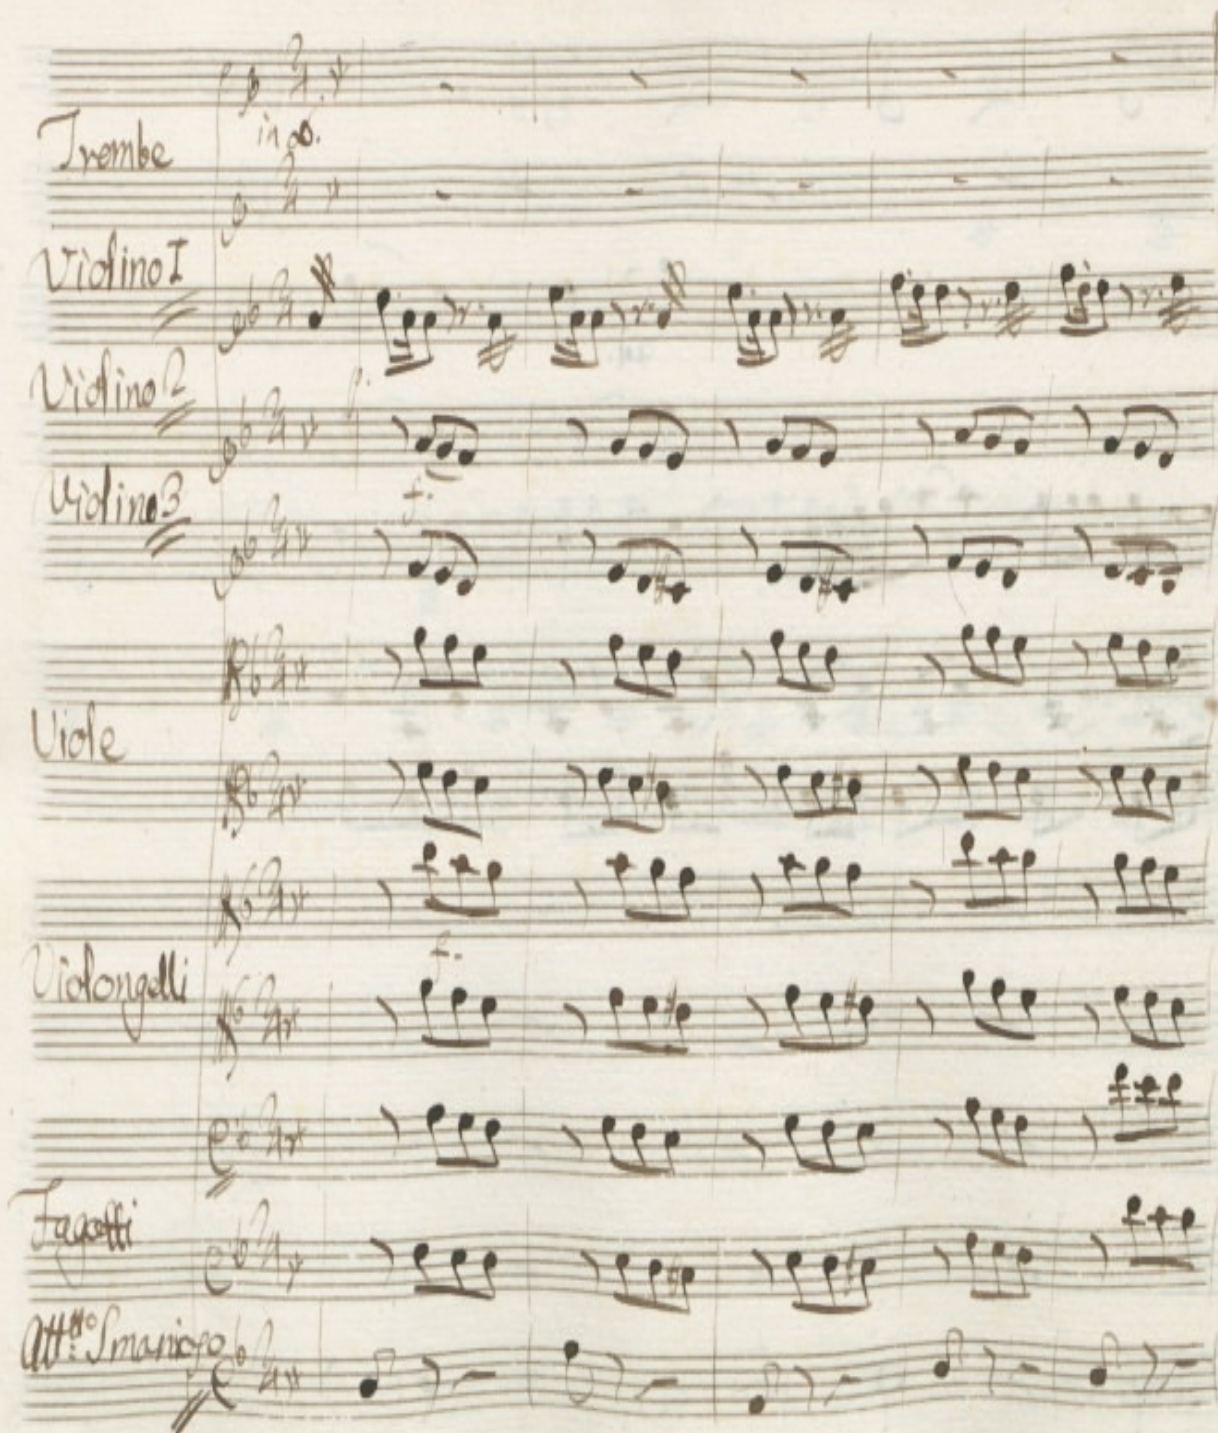 in
Trombe
Violino I
Violino 2
p.
Violino 3
f.
Viole
f.
Violongelli
Fagotti
Smanioso